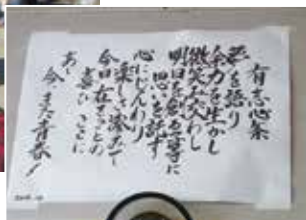 有志心条
夢を語り
余力を生かし
微笑み交わし
明日を創る事に
思いを託す
心にじんわり
楽しさ滲みて
今日在ることの
喜び ここに
あゝ今、また青春!